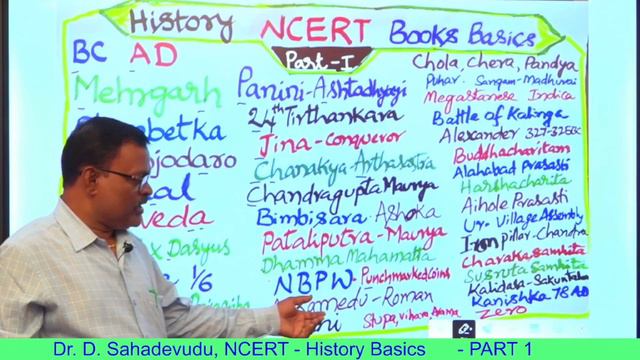 History NCERT Books Basics
Part-I
BC AD
Mehrgarh
betka
jodaro
al
veda
x Dasyus
1/6
Panini-Ashtadhyayi
24th Tirthankara
Jina-conqueror
Chanakya-Arthasastra
Chandragupta Maurya
Bimbisara-Ashoka
Pataliputra-Maurya
Dhamma Mahamatta
NBPW-Punchmarked coins
amedu-Roman
ni Stupa, vihara,
Chola, Chera, Pandya
Puhar-Sangam-Madhurai
Megastanese Indica
Battle of Kalinga
Alexander 327-325BC
Buddhacharitam
Alahabad Prasasti
Harshacharita
Aihole Prasasti
Ur-Village Assembly
Iron pillar-Chandra
Charaka Samhita
Susruta Samhita
Kalidasa-Sakuntala
Kanishka 78 AD
Zero
Dr. D. Sahadevudu, NCERT - History Basics - PART 1